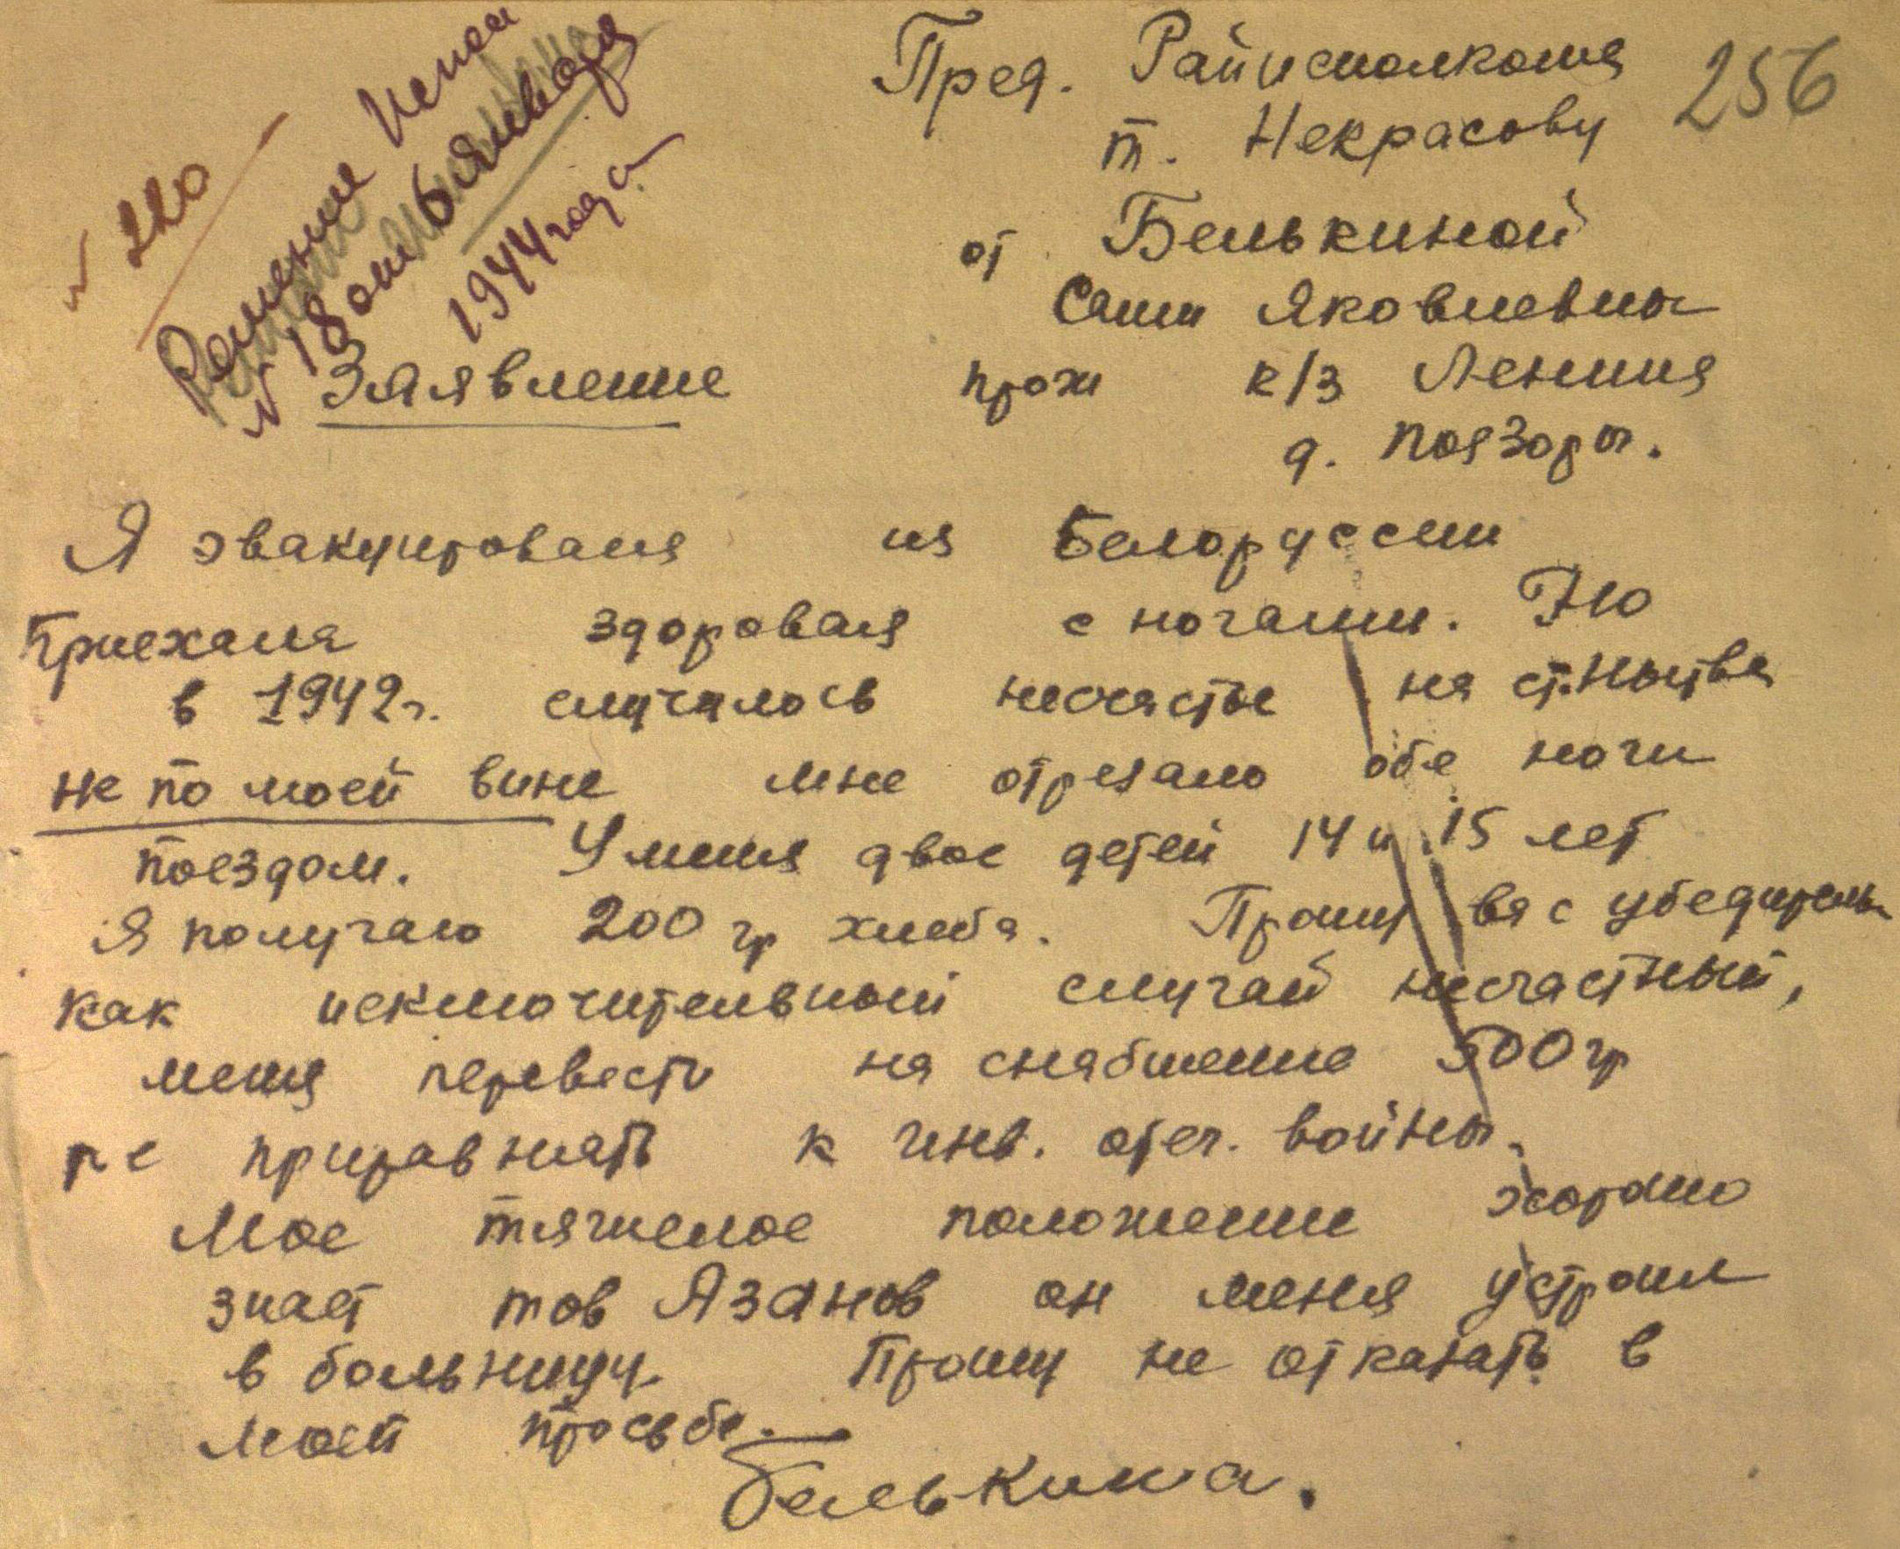 № 220
Решение Испол
№ 18 от 6 января
1944 года
256
Пред. Райисполкома
т. Некрасову
от Белькиной
Саши Яковлевны
прож к/з Ленина
д. Поязоры.
Заявление
Я эвакуирована из Белоруссии
Приехала здоровая с ногами. Но
в 1942 г. случилось несчастье на ст. Нытва
не по моей вине мне отрезало обе ноги
поездом. У меня двое детей 14 и 15 лет
Я получаю 200 гр хлеба. Прошу вас убедительн
как исключительный случай несчастный,
меня перевести на снабжение 500 гр
приравнять к инв. отеч. войны.
Мое тяжелое положение хорошо
знает тов Язанов он меня устроил
в больницу. Прошу не отказать в
моей просьбе.
Белькина.